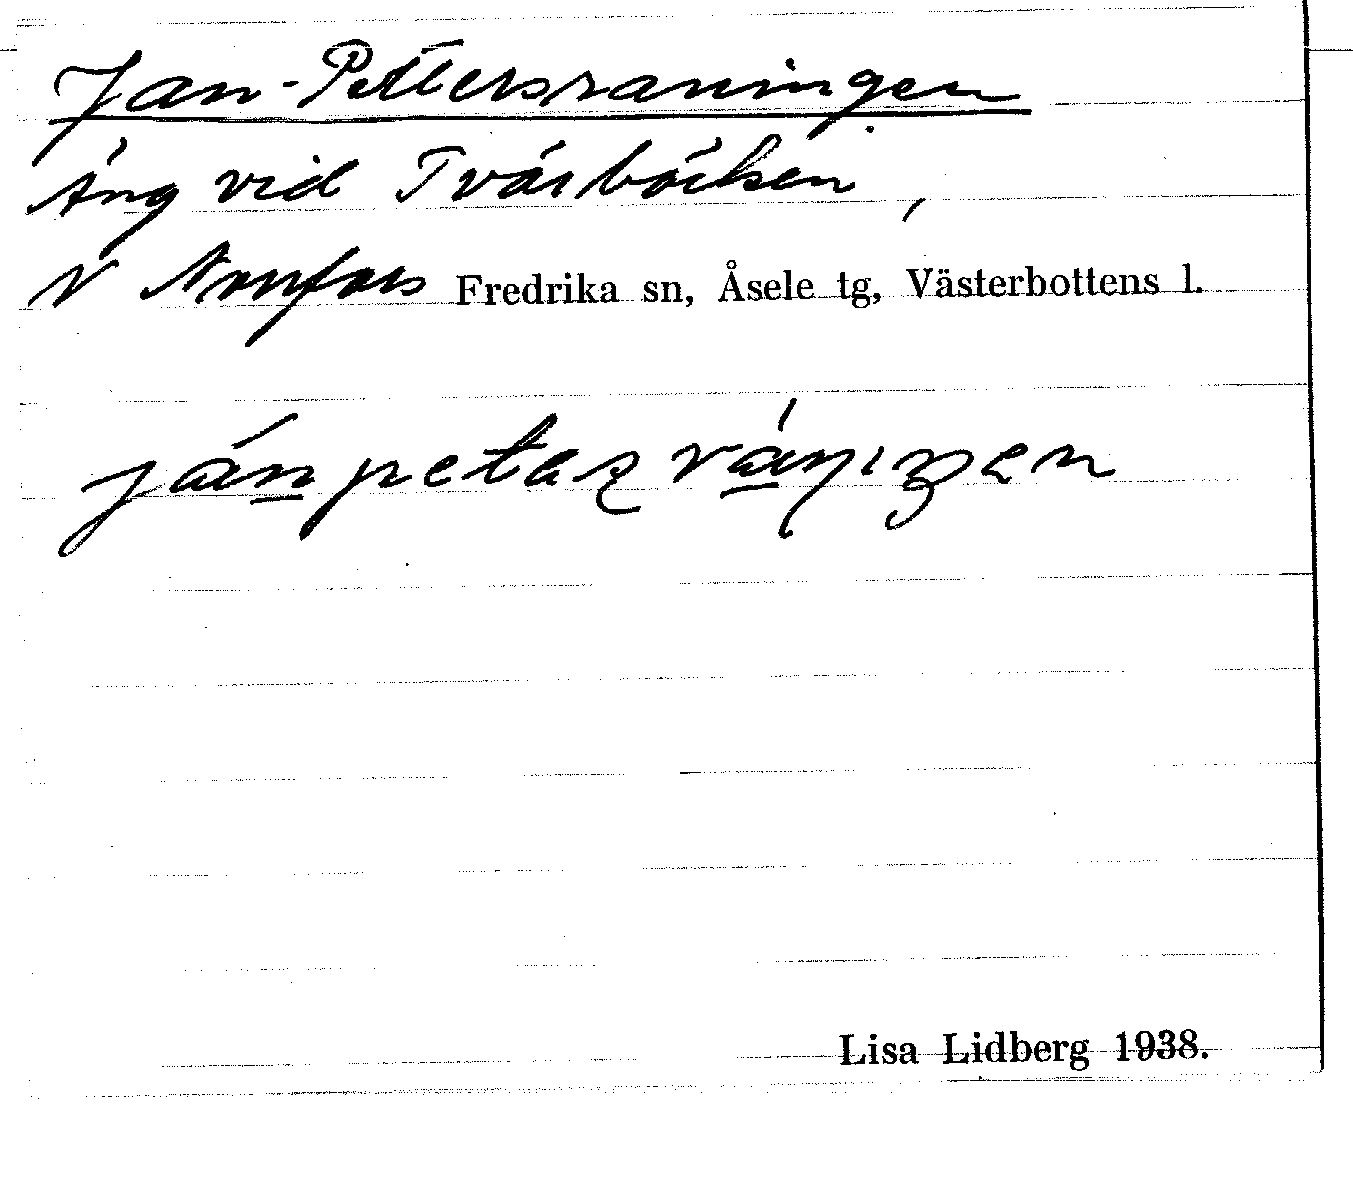 Jan-Pettersraningen
Äng vid Tvärbäcken,
V Nonfors Fredrika sn, Åsele tg, Västerbottens l.
Lisa Lidberg 1938.